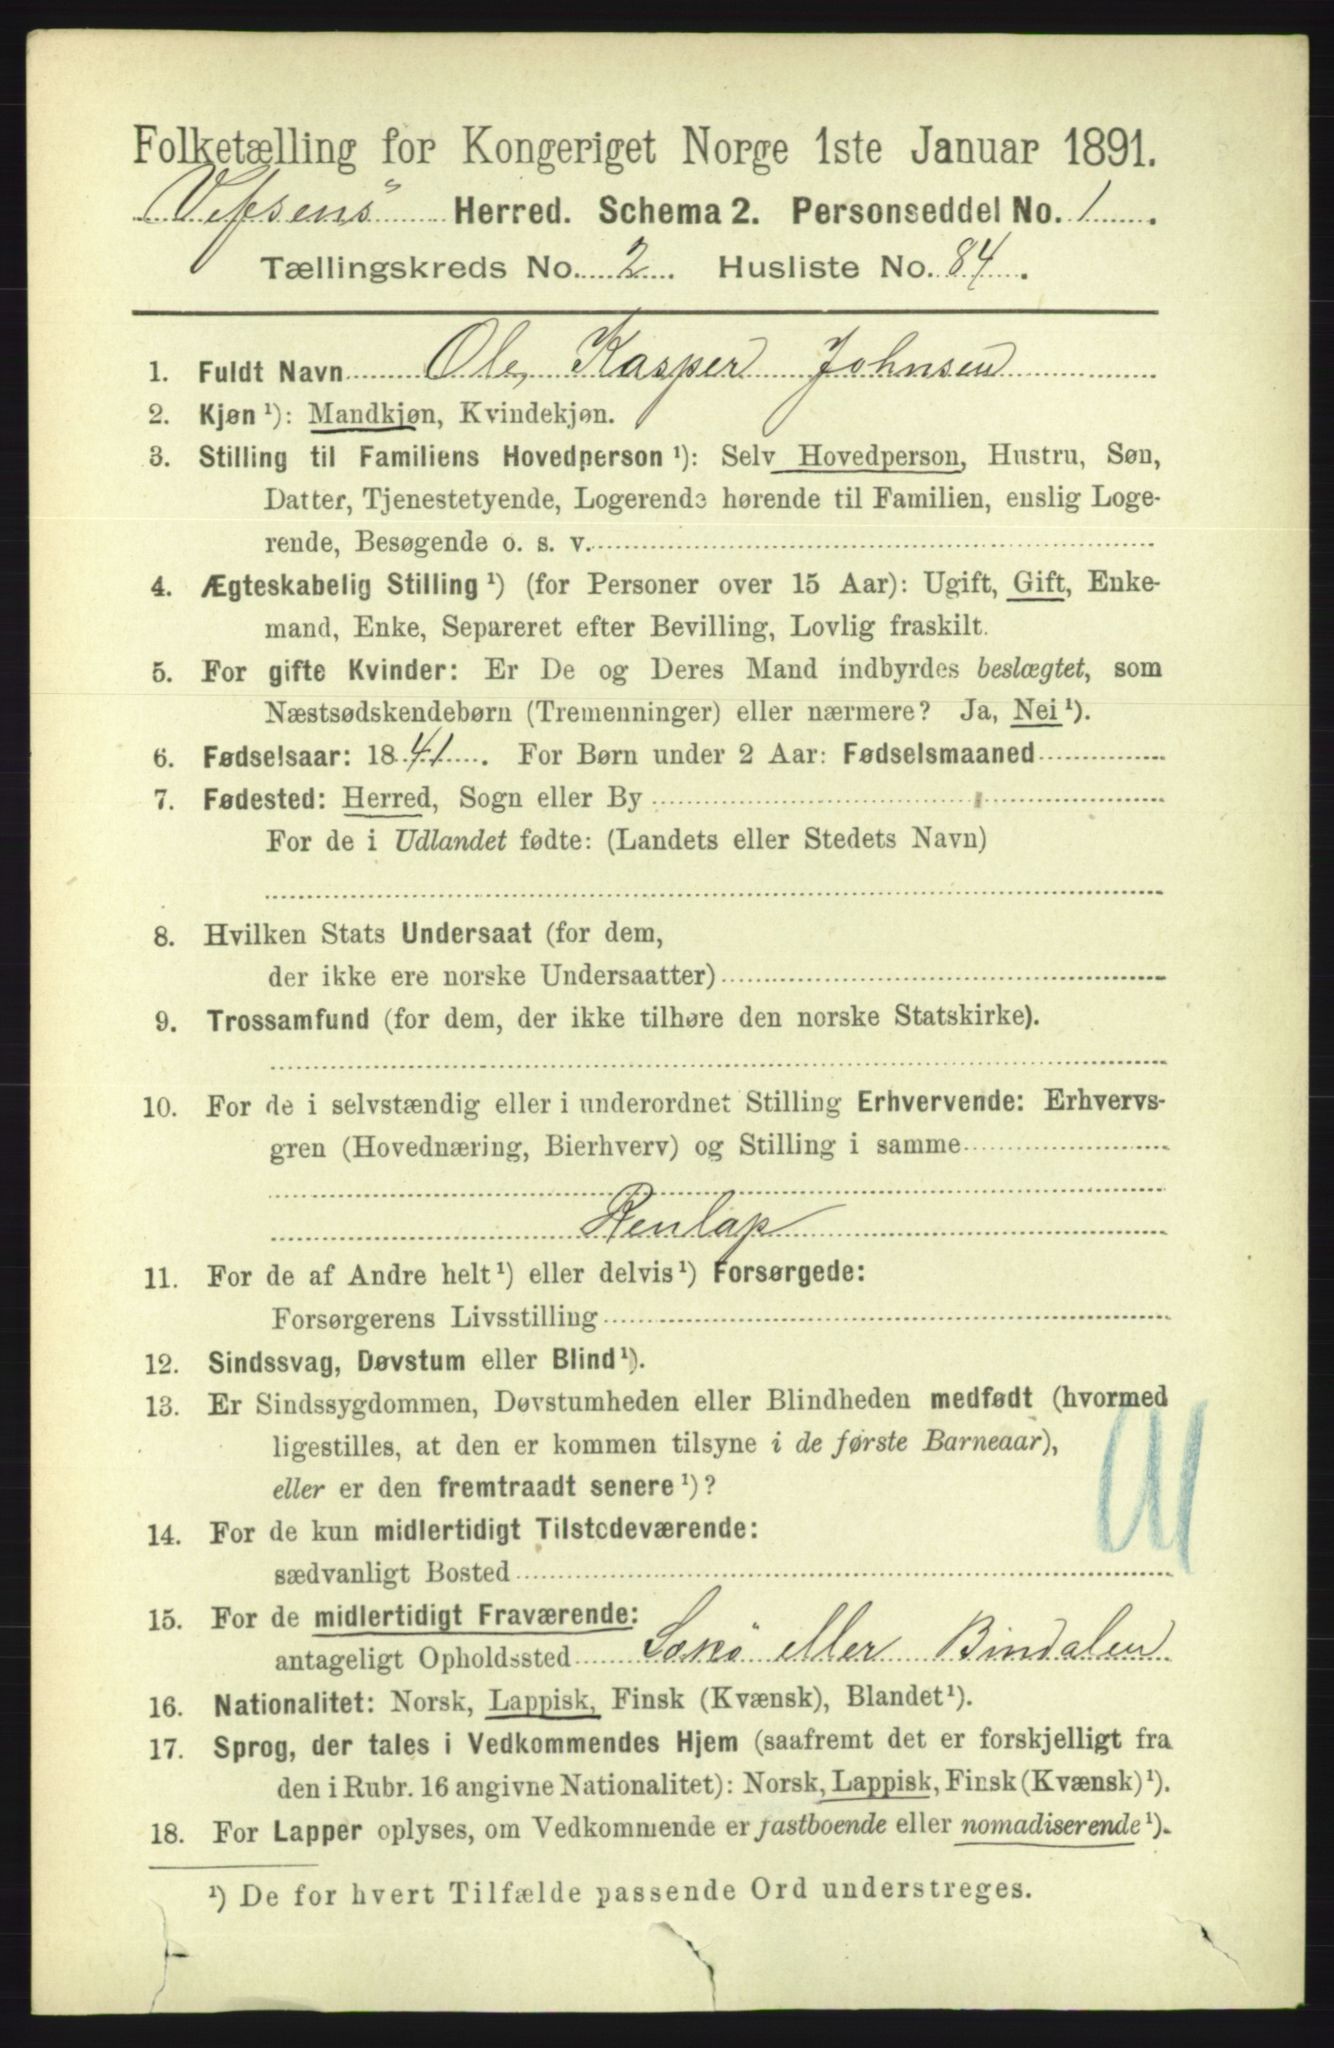 Folketælling for Kongeriget Norge 1ste Januar 1891.
Vefsens Herred. Schema 2. Personseddel No. 1.
Tællingskreds No. 2. Husliste No. 84.
1. Fuldt Navn Ole Kasper Johnsen
2. Kjøn ¹): Mandkjøn, Kvindekjøn.
3. Stilling til Familiens Hovedperson ¹): Selv Hovedperson, Hustru, Søn,
Datter, Tjenestetyende, Logerende hørende til Familien, enslig Loge-
rende, Besøgende o. s. v.
4. Ægteskabelig Stilling ¹) (for Personer over 15 Aar): Ugift, Gift, Enke-
mand, Enke, Separeret efter Bevilling, Lovlig fraskilt.
5. For gifte Kvinder: Er De og Deres Mand indbyrdes beslægtet, som
Næstsødskendebørn (Tremenninger) eller nærmere? Ja, Nei ¹).
6. Fødselsaar: 1841. For Børn under 2 Aar: Fødselsmaaned
7. Fødested: Herred, Sogn eller By
For de i Udlandet fødte: (Landets eller Stedets Navn)
8. Hvilken Stats Undersaat (for dem,
der ikke ere norske Undersaatter)
9. Trossamfund (for dem, der ikke tilhøre den norske Statskirke).
10. For de i selvstændig eller i underordnet Stilling Erhvervende: Erhvervs-
gren (Hovednæring, Bierhverv) og Stilling i samme
Renlap
11. For de af Andre helt ¹) eller delvis ¹) Forsørgede:
Forsørgerens Livsstilling
12. Sindssvag, Døvstum eller Blind ¹).
13. Er Sindssygdommen, Døvstumheden eller Blindheden medfødt (hvormed
ligestilles, at den er kommen tilsyne i de første Barneaar),
eller er den fremtraadt senere ¹)?
14. For de kun midlertidigt Tilstedeværende:
sædvanligt Bosted
15. For de midlertidigt Fraværende:
antageligt Opholdssted eller Bindalen
16. Nationalitet: Norsk, Lappisk, Finsk (Kvænsk), Blandet ¹).
17. Sprog, der tales i Vedkommendes Hjem (saafremt det er forskjelligt fra
den i Rubr. 16 angivne Nationalitet): Norsk, Lappisk, Finsk (Kvænsk) ¹).
18. For Lapper oplyses, om Vedkommende er fastboende eller nomadiserende ¹).
¹) De for hvert Tilfælde passende Ord understreges.